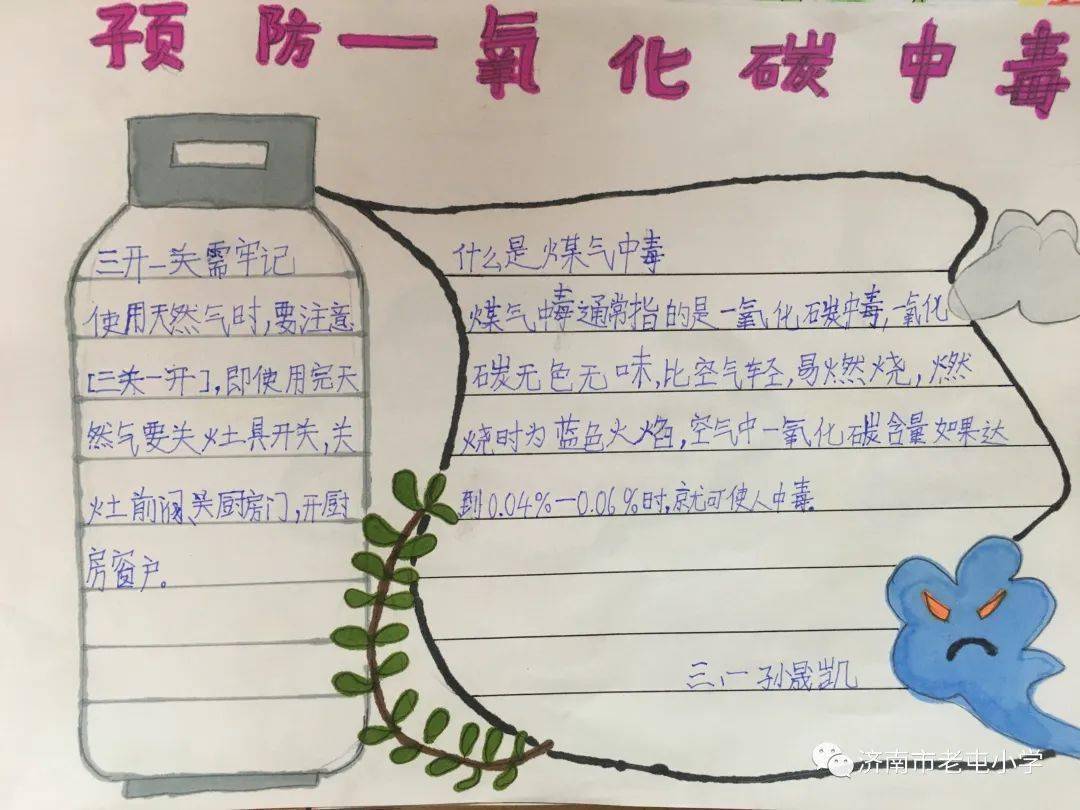 预防一氧化碳中毒
三开一关需牢记
使用天然气时,要注意
[三关一开],即使用完天
然气要关灶具开关,关
灶前阀、关厨房门,开厨
房窗户。
什么是煤气中毒
煤气中毒通常指的是一氧化碳中毒,一氧化
碳无色无味,比空气轻,易燃烧,燃
烧时为蓝色火焰,空气中一氧化碳含量如果达
到0.04%—0.06%时,就可使人中毒。
三、一 孙晟凯
济南市老屯小学